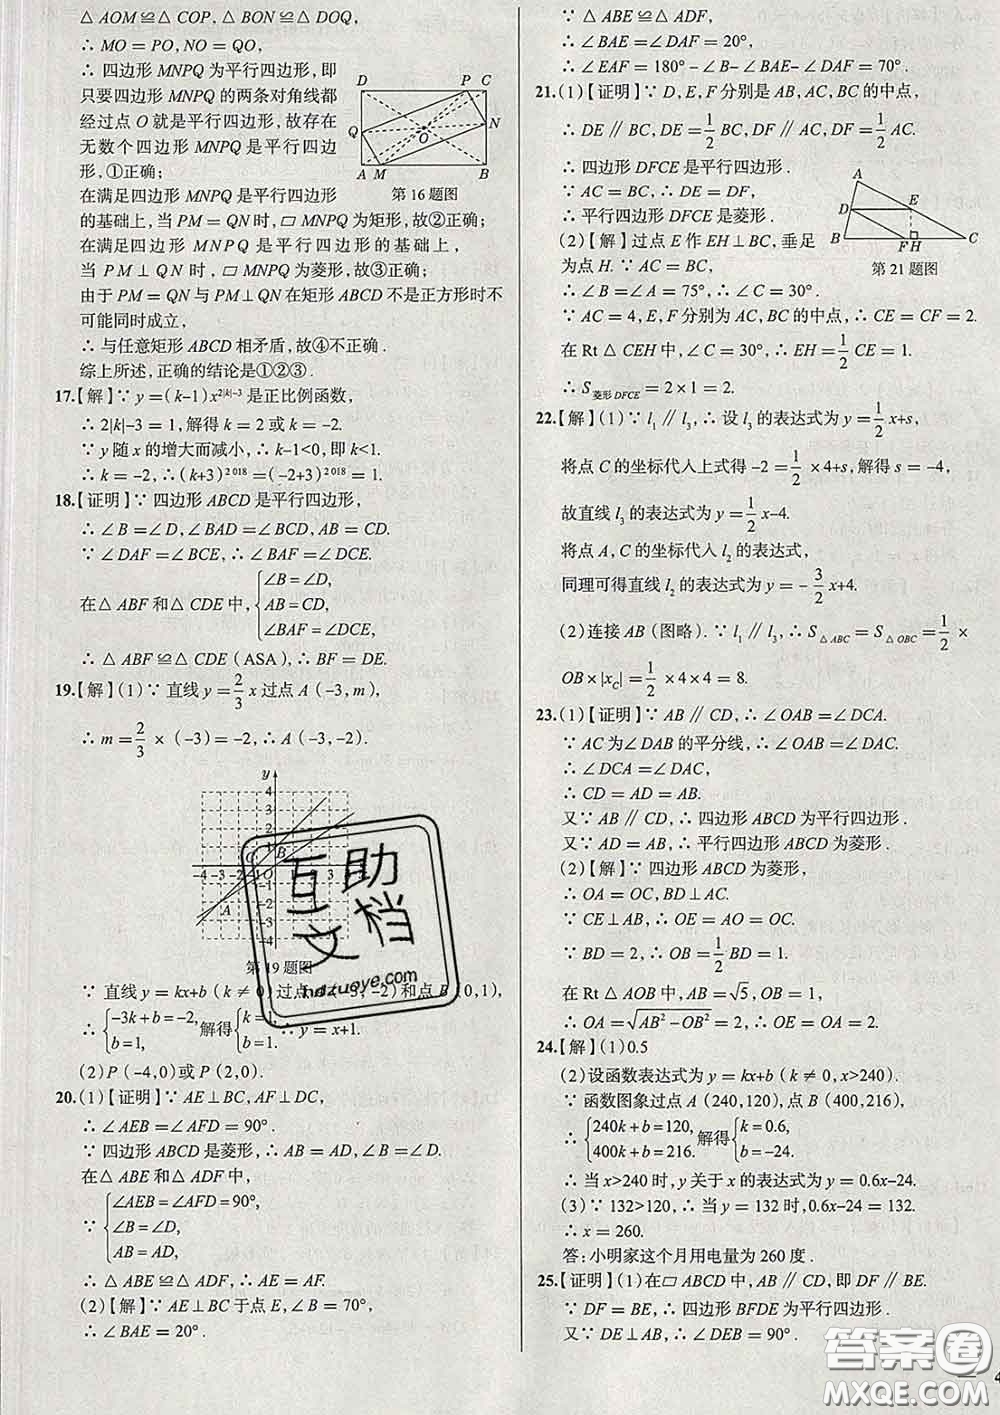 △AOM≌△COP，△BON≌△DOQ，
∴ MO=PO，NO=QO，
∴ 四边形 MNPQ 为平行四边形，即
只要四边形 MNPQ 的两条对角线都
经过点 O 就是平行四边形，故存在
无数个四边形 MNPQ 是平行四边
形，①正确；
在满足四边形 MNPQ 是平行四边形
的基础上，当 PM=QN 时，▱MNPQ 为矩形，故②正确；
在满足四边形 MNPQ 是平行四边形的基础上，
当 PM⊥QN 时，▱MNPQ 为菱形，故③正确；
由于 PM=QN 与 PM⊥QN 在矩形 ABCD 不是正方形时不
可能同时成立，
∴ 与任意矩形 ABCD 相矛盾，故④不正确．
综上所述，正确的结论是①②③．
D P C
Q O N
A M B
第16题图
17.【解】∵ y=(k-1)x^{2|k|-3} 是正比例函数，
∴ 2|k|-3=1，解得 k=2 或 k=-2.
∵ y 随 x 的增大而减小，∴ k-1<0，即 k<1.
∴ k=-2，∴ (k+3)^{2018}=(-2+3)^{2018}=1.
18.【证明】∵ 四边形 ABCD 是平行四边形，
∴ ∠B=∠D，∠BAD=∠BCD，AB=CD.
∵ ∠DAF=∠BCE，∴ ∠BAF=∠DCE.
在△ABF 和△CDE 中，{∠B=∠D，
AB=CD，
∠BAF=∠DCE，
∴ △ABF≌△CDE(ASA)，∴ BF=DE.
19.【解】(1)∵ 直线 y=2/3 x 过点 A(-3,m)，
∴ m=2/3×(-3)=-2，∴ A(-3,-2).
第19题图
∵ 直线 y=kx+b(k≠0)过点 A(-3,-2)和点 B(0,1)，
∴ {-3k+b=-2，b=1，解得{k=1，b=1. ∴ y=x+1.
(2)P(-4,0)或 P(2,0).
20.(1)【证明】∵ AE⊥BC，AF⊥DC，
∴ ∠AEB=∠AFD=90°.
∵ 四边形 ABCD 是菱形，∴ AB=AD，∠B=∠D.
在△ABE 和△ADF 中，
∵ {∠AEB=∠AFD=90°，
∠B=∠D，
AB=AD，
∴ △ABE≌△ADF，∴ AE=AF.
(2)【解】∵ AE⊥BC 于点 E，∠B=70°，
∴ ∠BAE=20°.
∵ △ABE≌△ADF，
∴ ∠BAE=∠DAF=20°，
∴ ∠EAF=180°-∠B-∠BAE-∠DAF=70°.
21.(1)【证明】∵ D，E，F 分别是 AB，AC，BC 的中点，
∴ DE∥BC，DE=1/2 BC，DF∥AC，DF=1/2 AC.
∴ 四边形 DFCE 是平行四边形．
∵ AC=BC，∴ DE=DF，
∴ 平行四边形 DFCE 是菱形．
(2)【解】过点 E 作 EH⊥BC，垂足
为点 H. ∵ AC=BC，
∴ ∠B=∠A=75°，∴ ∠C=30°.
A
D E
B F H C
第21题图
∵ AC=4，E，F 分别为 AC，BC 的中点，∴ CE=CF=2.
在 Rt△CEH 中，∠C=30°，∴ EH=1/2 CE=1.
∴ S菱形DFCE=2×1=2.
22.【解】(1)∵ l₁∥l₃，∴ 设 l₃ 的表达式为 y=1/2 x+s，
将点 C 的坐标代入上式得 -2=1/2×4+s，解得 s=-4，
故直线 l₃ 的表达式为 y=1/2 x-4.
将点 A，C 的坐标代入 l₂ 的表达式，
同理可得直线 l₂ 的表达式为 y=-3/2 x+4.
(2)连接 AB(图略). ∵ l₁∥l₃，∴ S△ABC=S△OBC=1/2×
OB×|x_C|=1/2×4×4=8.
23.(1)【证明】∵ AB∥CD，∴ ∠OAB=∠DCA.
∵ AC 为∠DAB 的平分线，∴ ∠OAB=∠DAC.
∴ ∠DCA=∠DAC，
∴ CD=AD=AB.
又∵ AB∥CD，∴ 四边形 ABCD 为平行四边形．
又∵ AD=AB，∴ 平行四边形 ABCD 为菱形．
(2)【解】∵ 四边形 ABCD 为菱形，
∴ OA=OC，BD⊥AC.
∵ CE⊥AB，∴ OE=AO=OC.
∵ BD=2，∴ OB=1/2 BD=1.
在 Rt△AOB 中，AB=√5，OB=1，
∴ OA=√(AB²-OB²)=2，∴ OE=OA=2.
24.【解】(1)0.5
(2)设函数表达式为 y=kx+b(k≠0，x>240).
∵ 函数图象过点 A(240,120)，点 B(400,216)，
∴ {240k+b=120，400k+b=216，解得{k=0.6，b=-24.
∴ 当 x>240 时，y 关于 x 的表达式为 y=0.6x-24.
(3)∵ 132>120，∴ 当 y=132 时，0.6x-24=132，
∴ x=260.
答：小明家这个月用电量为 260 度．
25.【证明】(1)在▱ABCD 中，AB∥CD，即 DF∥BE.
∵ DF=BE，∴ 四边形 BFDE 为平行四边形．
又∵ DE⊥AB，∴ ∠DEB=90°.
互助文档
hdzuoye.com
答案圈
MXQE.COM
4